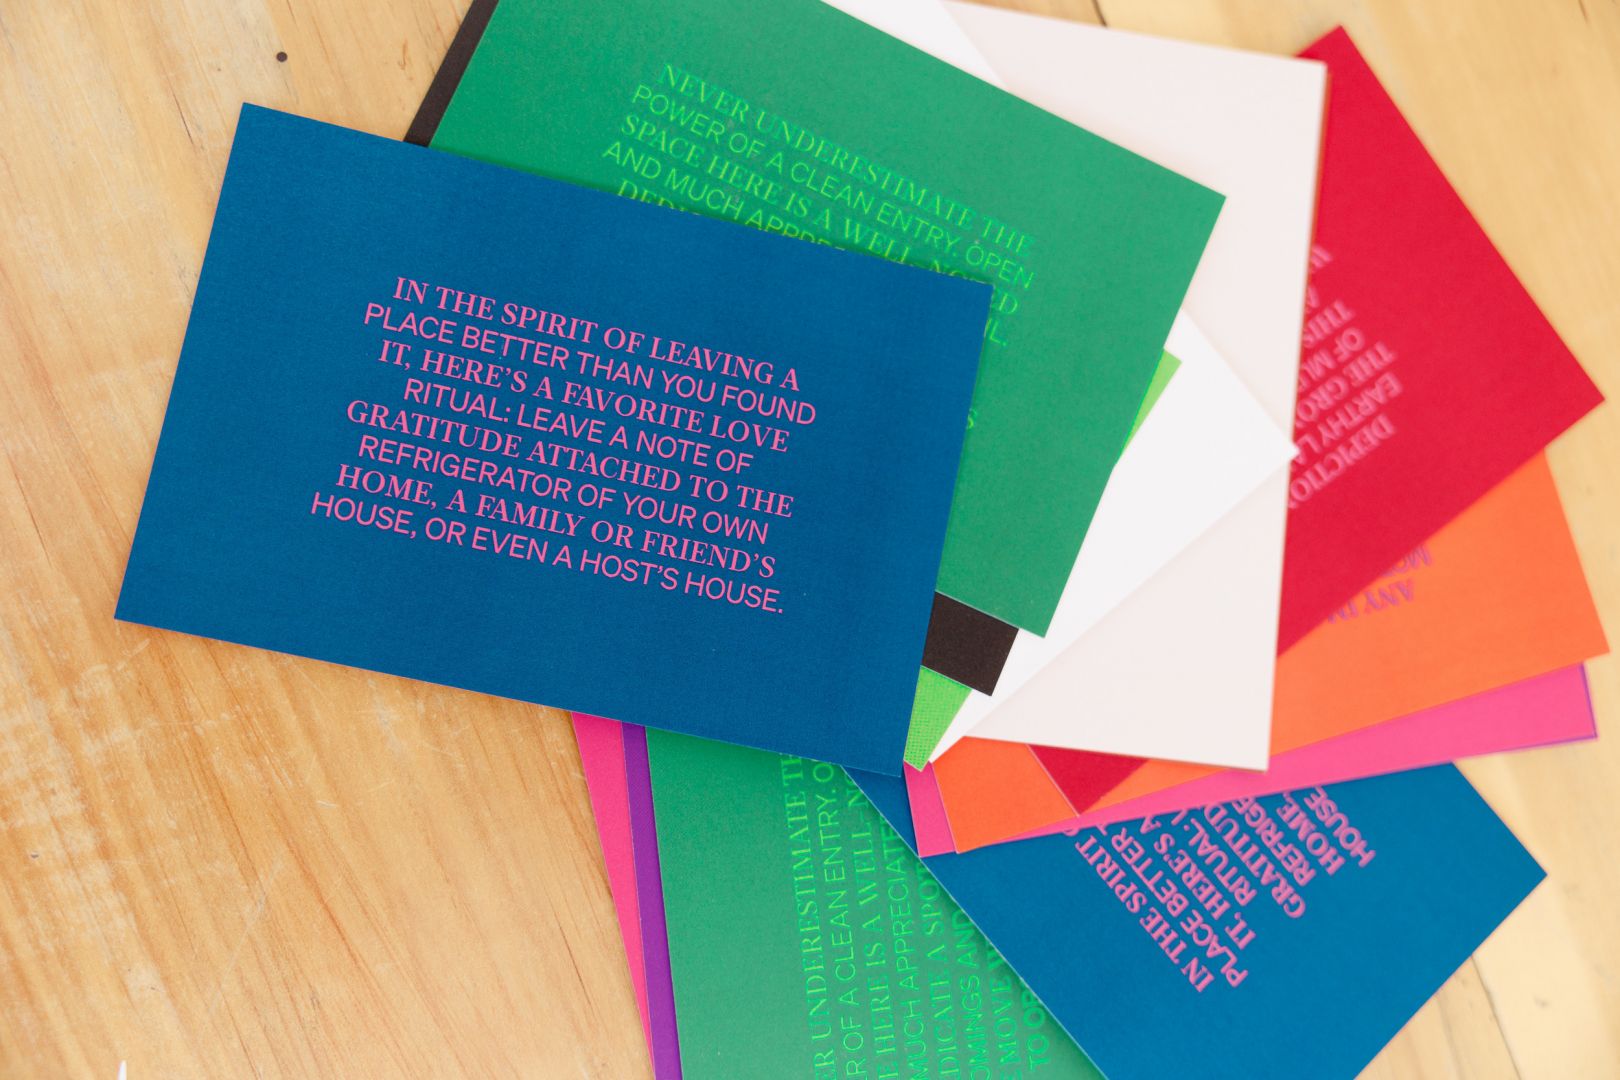 IN THE SPIRIT OF LEAVING A
PLACE BETTER THAN YOU FOUND
IT, HERE'S A FAVORITE LOVE
RITUAL: LEAVE A NOTE OF
GRATITUDE ATTACHED TO THE
REFRIGERATOR OF YOUR OWN
HOME, A FAMILY OR FRIEND'S
HOUSE, OR EVEN A HOST'S HOUSE.
NEVER UNDERESTIMATE THE
POWER OF A CLEAN ENTRY. OPEN
SPACE HERE IS A WELL-NO
AND MUCH
DEPICTION
EARTHY
THE
OF
THIS
ANY
UNDERESTIMATE
OF A CLEAN ENTRY.
HERE IS A WELL-NO
MUCH APPRECIATE
A SPO
AND
MOVE
TO
IN THE SPIRIT
PLACE BETTER
IT, HERE'S A
RITUAL:
GRATITUD
REFRIGE
HOME,
HOUSE